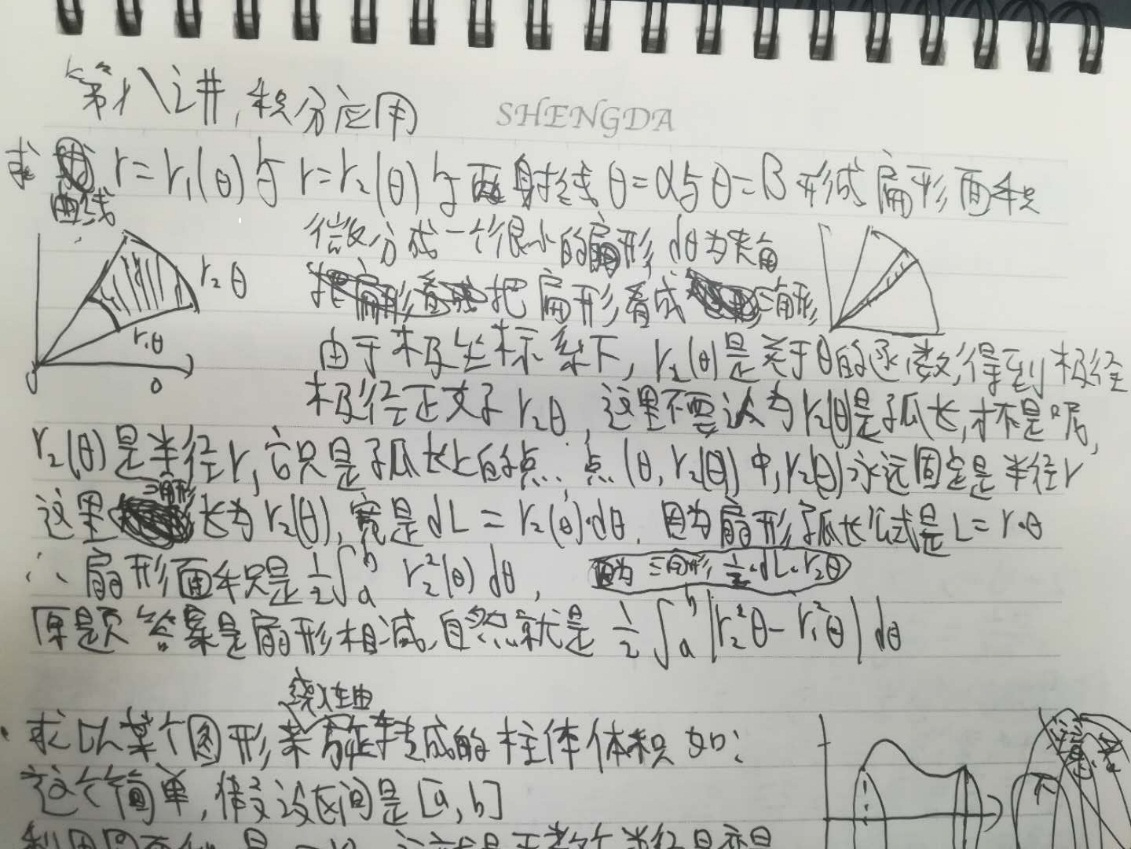 第八讲,积分应用
SHENGDA
求 曲线 r=r₁(θ)与r=r₂(θ)与两射线θ=α与θ=β形成扇形面积
微分成一个很小的扇形 dθ为夹角
把扇形看成三角形
r₂θ
r₁θ
θ
由于极坐标系下,r₂(θ)是关于θ的函数,得到极径
极径正文子r₂θ,这里不要认为r₂(θ)是弧长,才不是呢,
r₂(θ)是半径r,它只是弧长上的点,点(θ,r₂(θ))中,r₂(θ)永远固定是半径r
这里三角形长为r₂(θ),宽是dL=r₂(θ)·dθ,因为扇形弧长公式是L=r·θ
∴扇形面积是½∫ₐᵇ r₂²(θ)dθ, 因为三角形½·dL·r₂θ
原题答案是扇形相减,自然就是 ½∫ₐᵇ|r₂²θ-r₁²θ|dθ
·求以某个图形绕x轴旋转成的柱体体积 如:
这个简单,假设区间是[a,b]